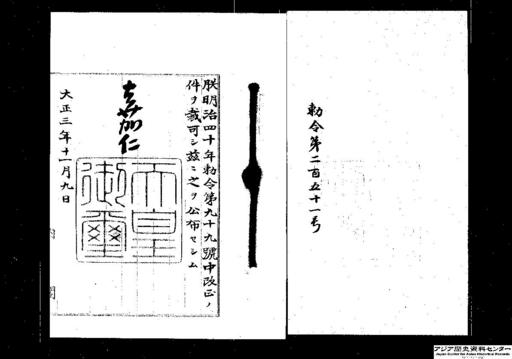 勅令第二百五十一号
朕明治四十年勅令第九十九號中改正ノ
件ヲ裁可シ玆ニ之ヲ公布セシム
嘉仁
天皇
御璽
大正三年十一月九日
内閣
アジア歴史資料センター
Japan Center for Asian Historical Records